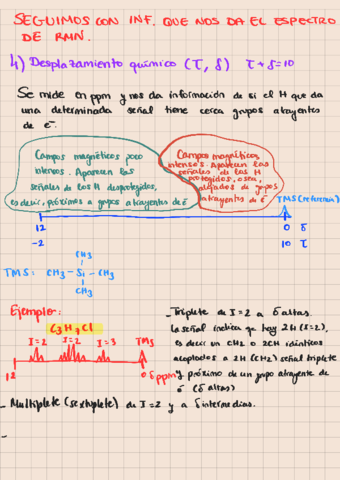 SEGUIMOS CON INF. QUE NOS DA EL ESPECTRO
DE RMN.
4) Desplazamiento químico (τ, δ) τ + δ = 10
Se mide en ppm y nos da información de si el H que da
una determinada señal tiene cerca grupos atrayentes
de e⁻.
Campos magnéticos poco
intensos. Aparecen las
señales de los H desprotegidos,
es decir, próximos a grupos atrayentes de e⁻
Campos magnéticos
intensos. Aparecen las
señales de los H
protegidos, o sea,
alejados de grupos
atrayentes de e⁻
TMS (referencia)
12 0 δ
-2 10 τ
CH3
TMS: CH3 - Si - CH3
CH3
Ejemplo:
C3H7Cl
I=2 I=2 I=3 TMS
12 0 δ ppm
- Triplete de I=2 a δ altas.
La señal indica que hay 2H (I=2),
es decir un CH2 o 2CH idénticos
acoplados a 2H (CH2) señal triplete
y próximo de un grupo atrayente de
e⁻ (δ altas)
- Multiplete (sextuplete) de I=2 y a δ intermedias.
-